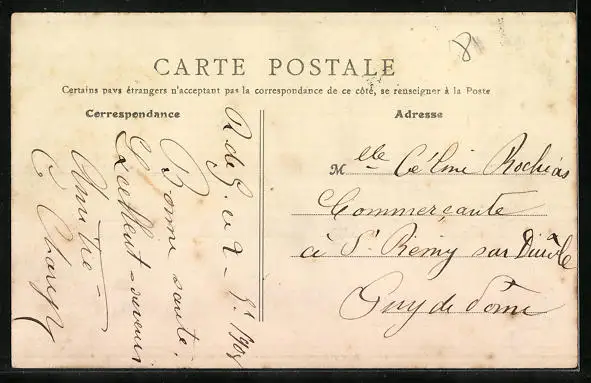 8
CARTE POSTALE
Certains pays étrangers n'acceptant pas la correspondance de ce côté, se renseigner à la Poste
Correspondance
Adresse
1908
Bonne santé.
Excellent souvenir
Amitié
Mlle Céline Rochias
Commerçante
à St Rémy sur Durolle
Puy de Dôme